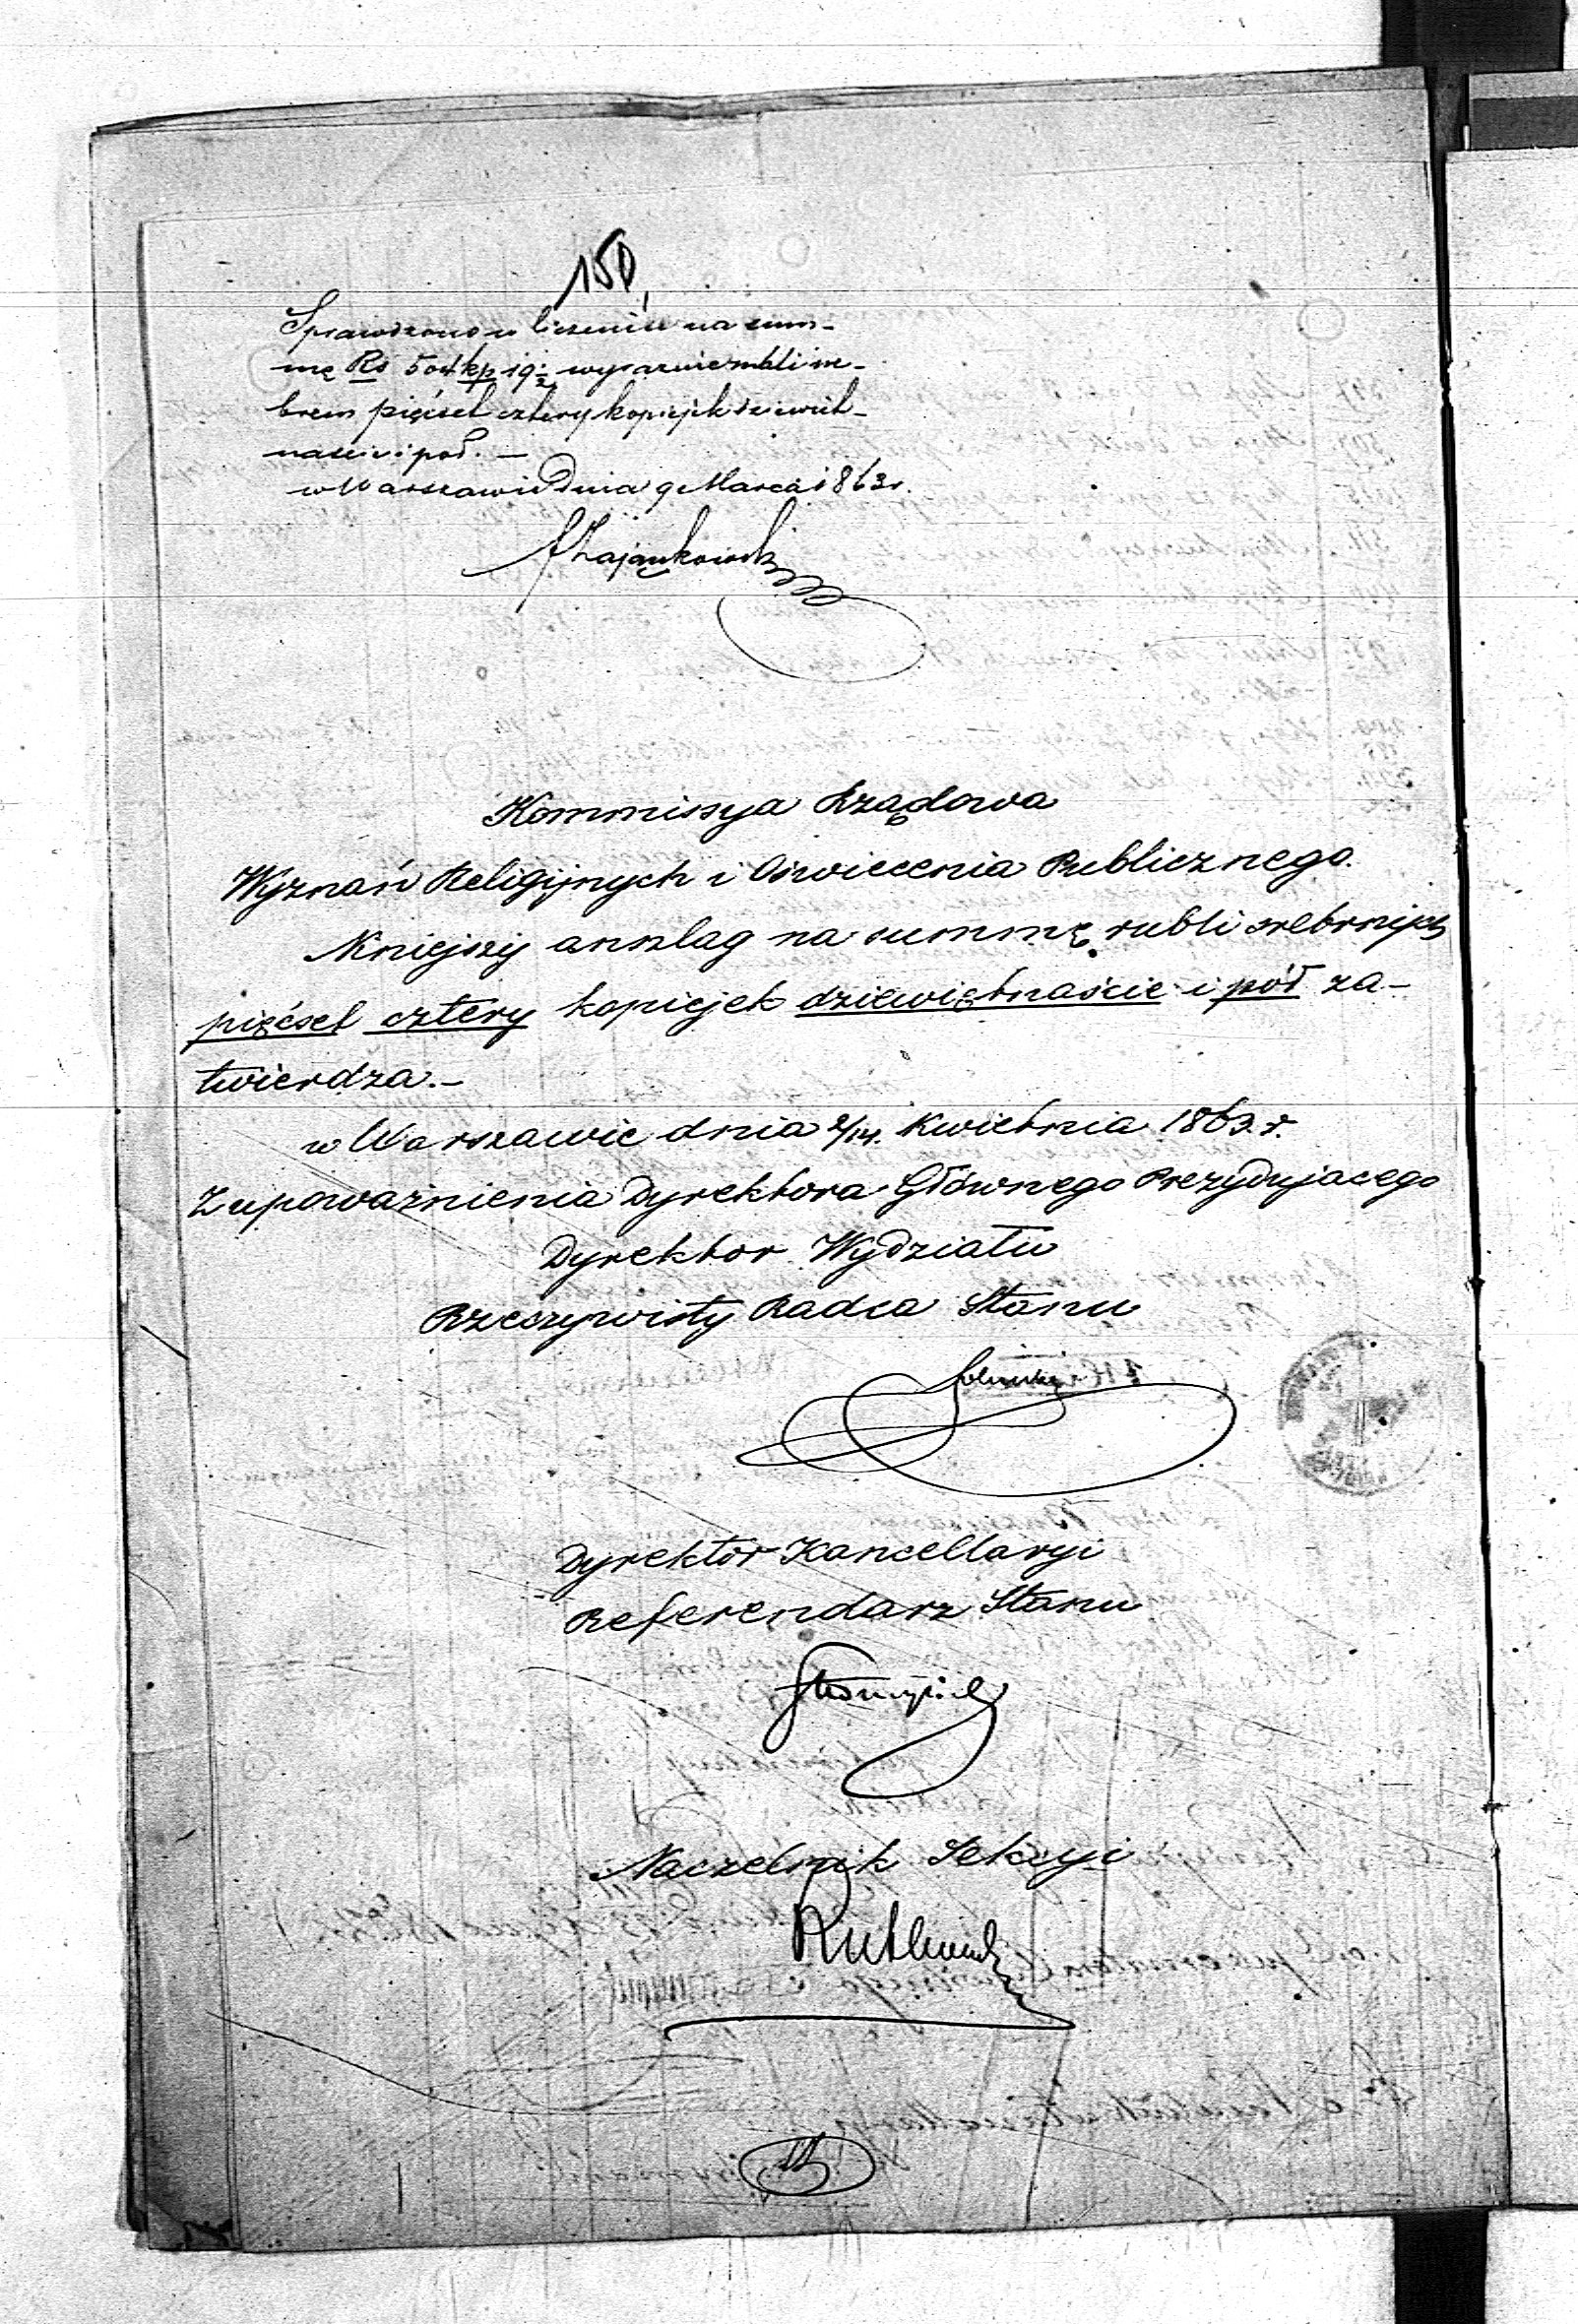 150
Sprawdzono w liczeniu na sum-
mę Rs 504 kp 19 1/2 wyraźnie rubli sre-
brem pięćset cztery kopiejek dziewięt-
naście i pół. —
w Warszawie Dnia 9 Marca 1863 r.
Kommissya Rządowa
Wyznań Religijnych i Oświecenia Publicznego.
Niniejszy anszlag na summę rubli srebrnych
pięćset cztery kopiejek dziewiętnaście i pół za-
twierdza. —
w Warszawie dnia 2/14. Kwietnia 1863. r.
Z upoważnienia Dyrektora Głównego Prezydującego
Dyrektor Wydziału
Rzeczywisty Radca Stanu
Dyrektor Kancellaryi
Referendarz Stanu
Naczelnik Sekcyi